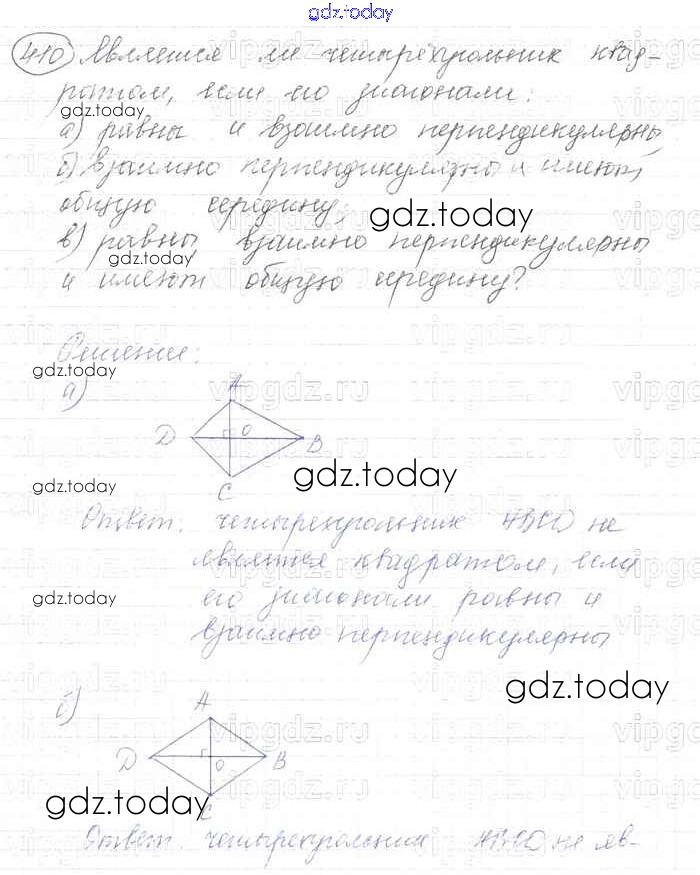 gdz.today
410 Является ли четырёхугольник квад-
ратом, если его диагонали:
gdz.today
а) равны и взаимно перпендикулярны,
б) взаимно перпендикулярны и имеют
общую середину;
gdz.today
в) равны взаимно перпендикулярны
gdz.today
и имеют общую середину?
vipgdz.ru
Решение:
gdz.today
vipgdz.ru
а)
A
D O B
gdz.today
gdz.today
C
Ответ: четырехугольник ABCD не
является квадратом, если
gdz.today
его диагонали равны и
взаимно перпендикулярны
gdz.today
б)
A
vipgdz.ru
D O B
gdz.today
C
Ответ: четырехугольник ABCD не яв-